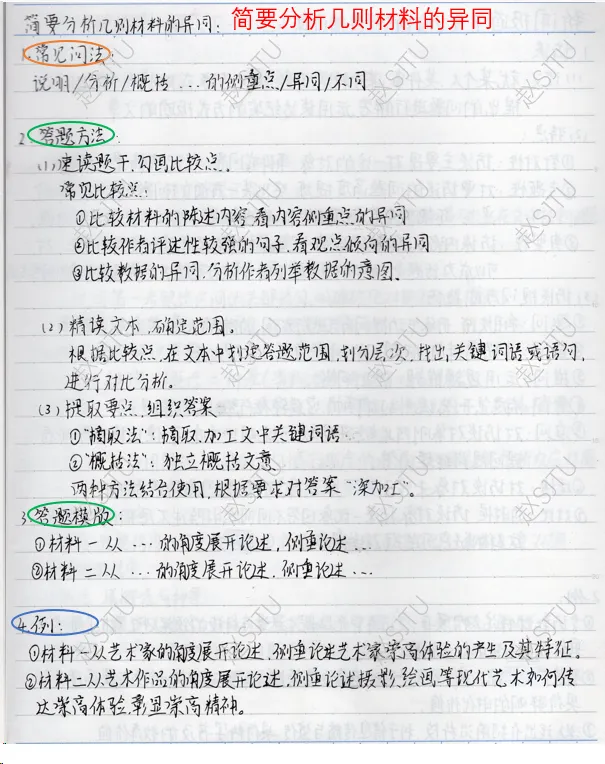 简要分析几则材料的异同: 简要分析几则材料的异同
1.常见问法:
说明/分析/概括 ... 的侧重点/异同/不同
2.答题方法:
(1)速读题干,勾画比较点。
常见比较点:
①比较材料的陈述内容,看内容侧重点的异同
②比较作者评述性较强的句子,看观点倾向的异同
③比较数据的异同,分析作者列举数据的意图。
(2)精读文本,确定范围。
根据比较点,在文本中划定答题范围,划分层次,找出关键词语或语句,
进行对比分析。
(3)提取要点,组织答案
①"摘取法":摘取,加工文中关键词语
②"概括法":独立概括文意
两种方法结合使用,根据要求对答案"深加工"。
3.答题模版:
①材料一从...的角度展开论述,侧重论述...
②材料二从...的角度展开论述,侧重论述...
4.例:
①材料一从艺术家的角度展开论述,侧重论述艺术家崇高体验的产生及其特征。
②材料二从艺术作品的角度展开论述,侧重论述摄影,绘画等现代艺术如何传
达崇高体验,彰显崇高精神。
赵SJTU